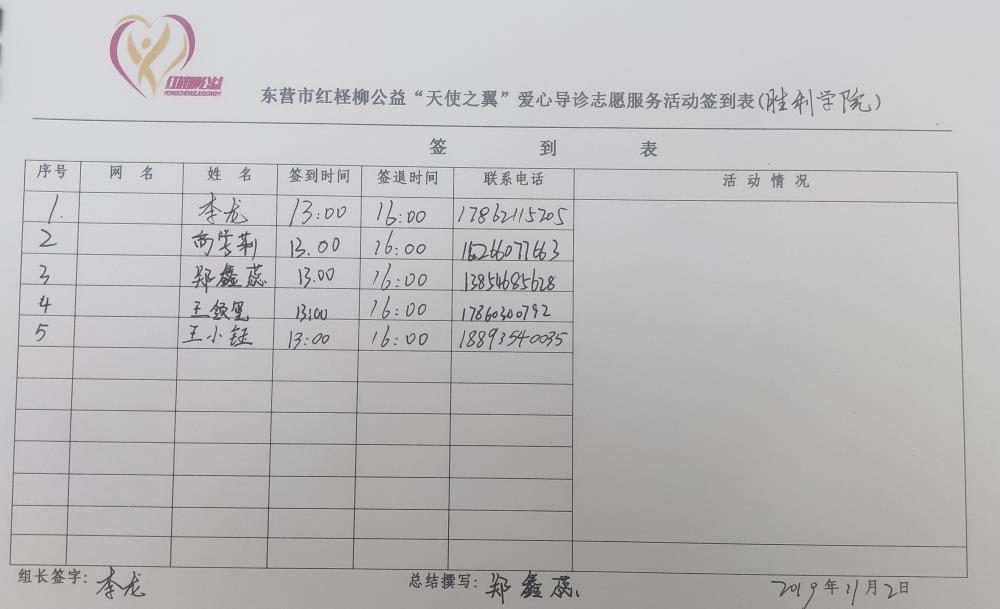 红柽柳公益
HONGCHENGLIUGONGYI
东营市红柽柳公益“天使之翼”爱心导诊志愿服务活动签到表(胜利学院)
签 到 表
序号 网 名 姓 名 签到时间 签退时间 联系电话 活 动 情 况
1. 李龙 13:00 16:00 17862115205
2 13.00 16:00 16266077663
3 郑鑫蕊 13.00 16:00 13854685628
4 13:00 16:00 17860300792
5 王小钰 13:00 16:00 18893540035
组长签字: 李龙 总结撰写: 郑鑫蕊 2019年11月2日